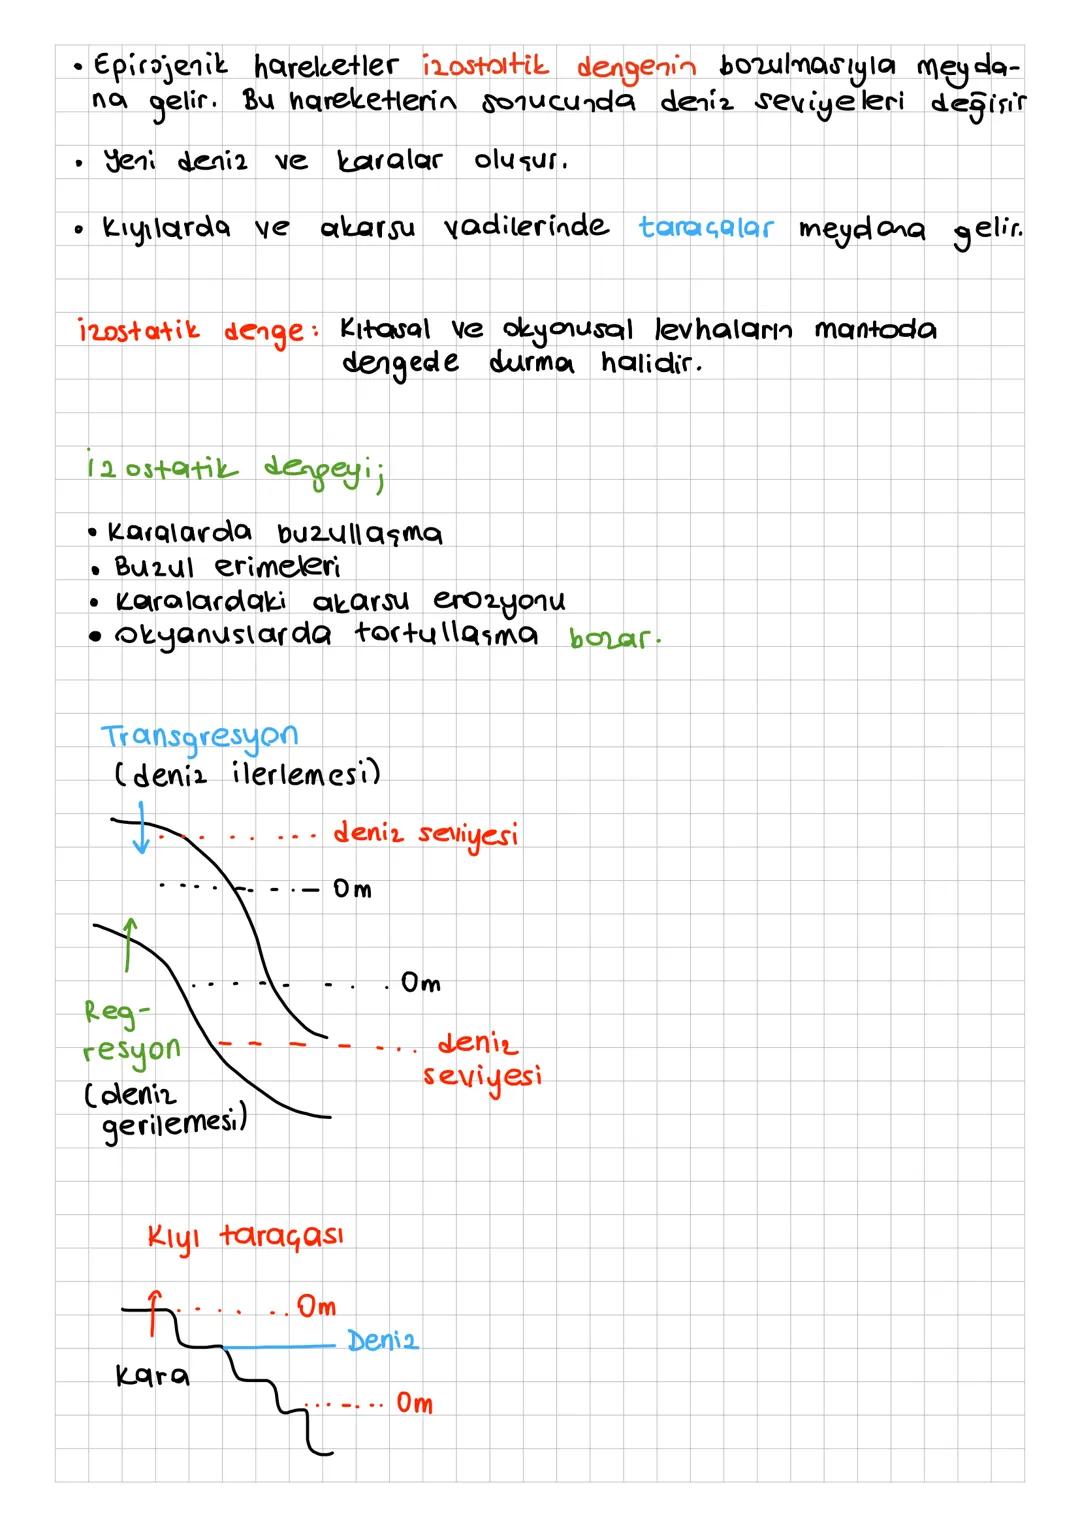 • Epirojenik hareketler izostatik dengenin bozulmasıyla meyda-
na gelir. Bu hareketlerin sonucunda deniz seviyeleri değişir
• Yeni deniz ve karalar oluşur.
• Kıyılarda ve akarsu vadilerinde taraçalar meydana gelir.
izostatik denge: Kıtasal ve okyonusal levhaların mantoda
dengede durma halidir.
izostatik dengeyi;
• Karalarda buzullaşma
• Buzul erimeleri
• Karalardaki akarsu erozyonu
• Okyanuslarda tortullaşma bozar.
Transgresyon
(deniz ilerlemesi)
deniz seviyesi
0m
0m
Reg-
resyon
deniz
seviyesi
(deniz
gerilemesi)
Kıyı taraçası
0m
Deniz
Kara
0m